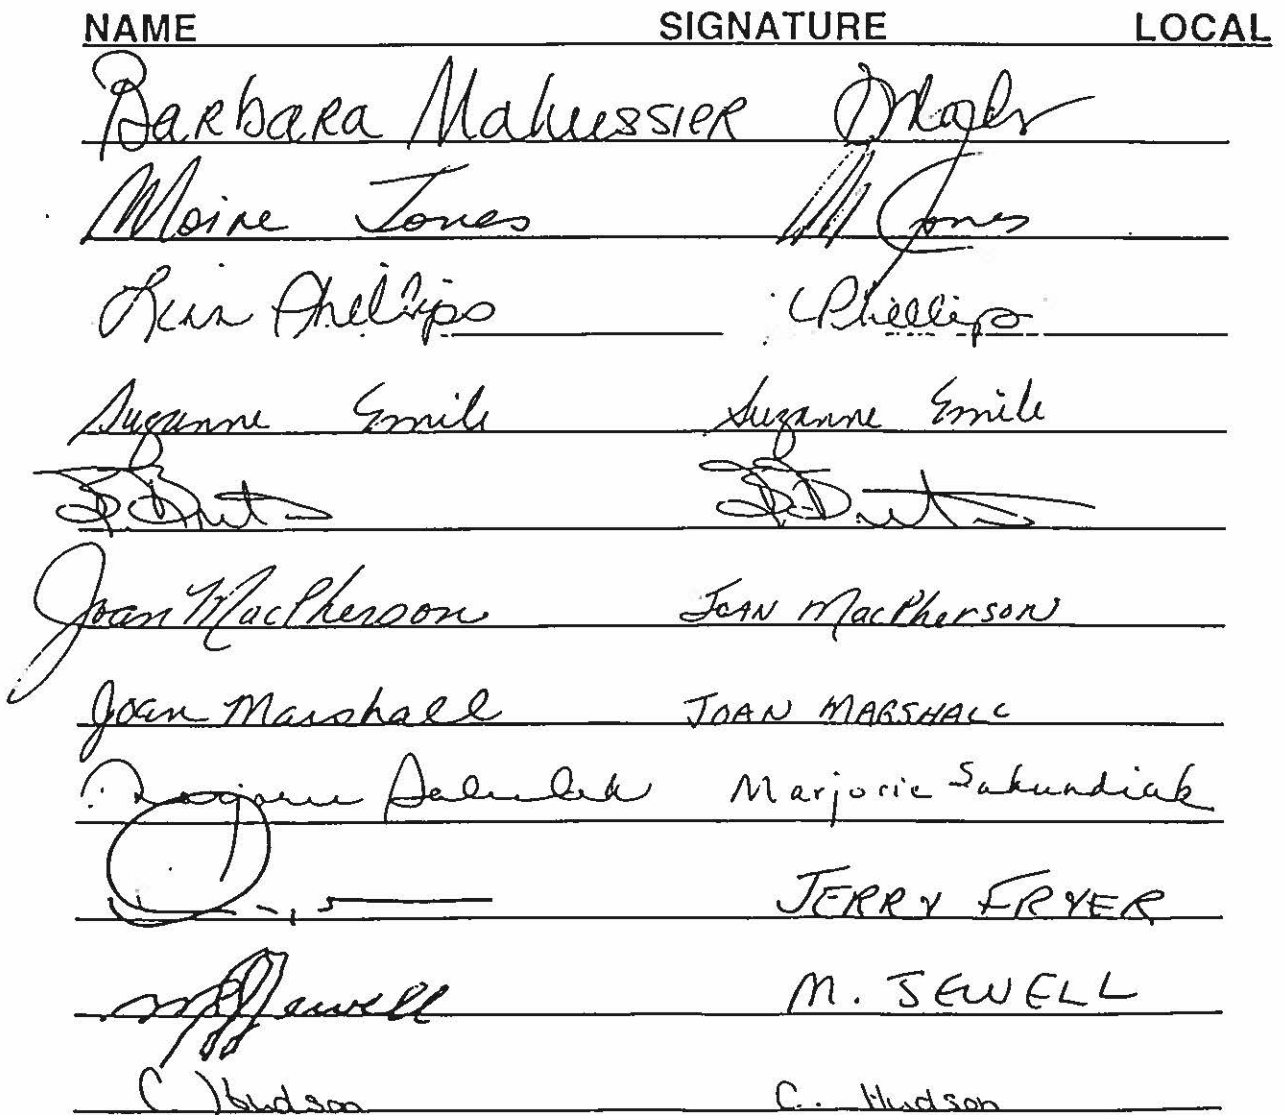 NAME SIGNATURE LOCAL
Barbara
Moire Jones M Jones
Phillips Phillips
Suzanne Emile Suzanne Emile
Joan MacPherson JOAN MacPherson
Joan Marshall JOAN MARSHALL
Marjorie Sakundiak
JERRY FRYER
Jewell M. JEWELL
C. Hudson C. Hudson